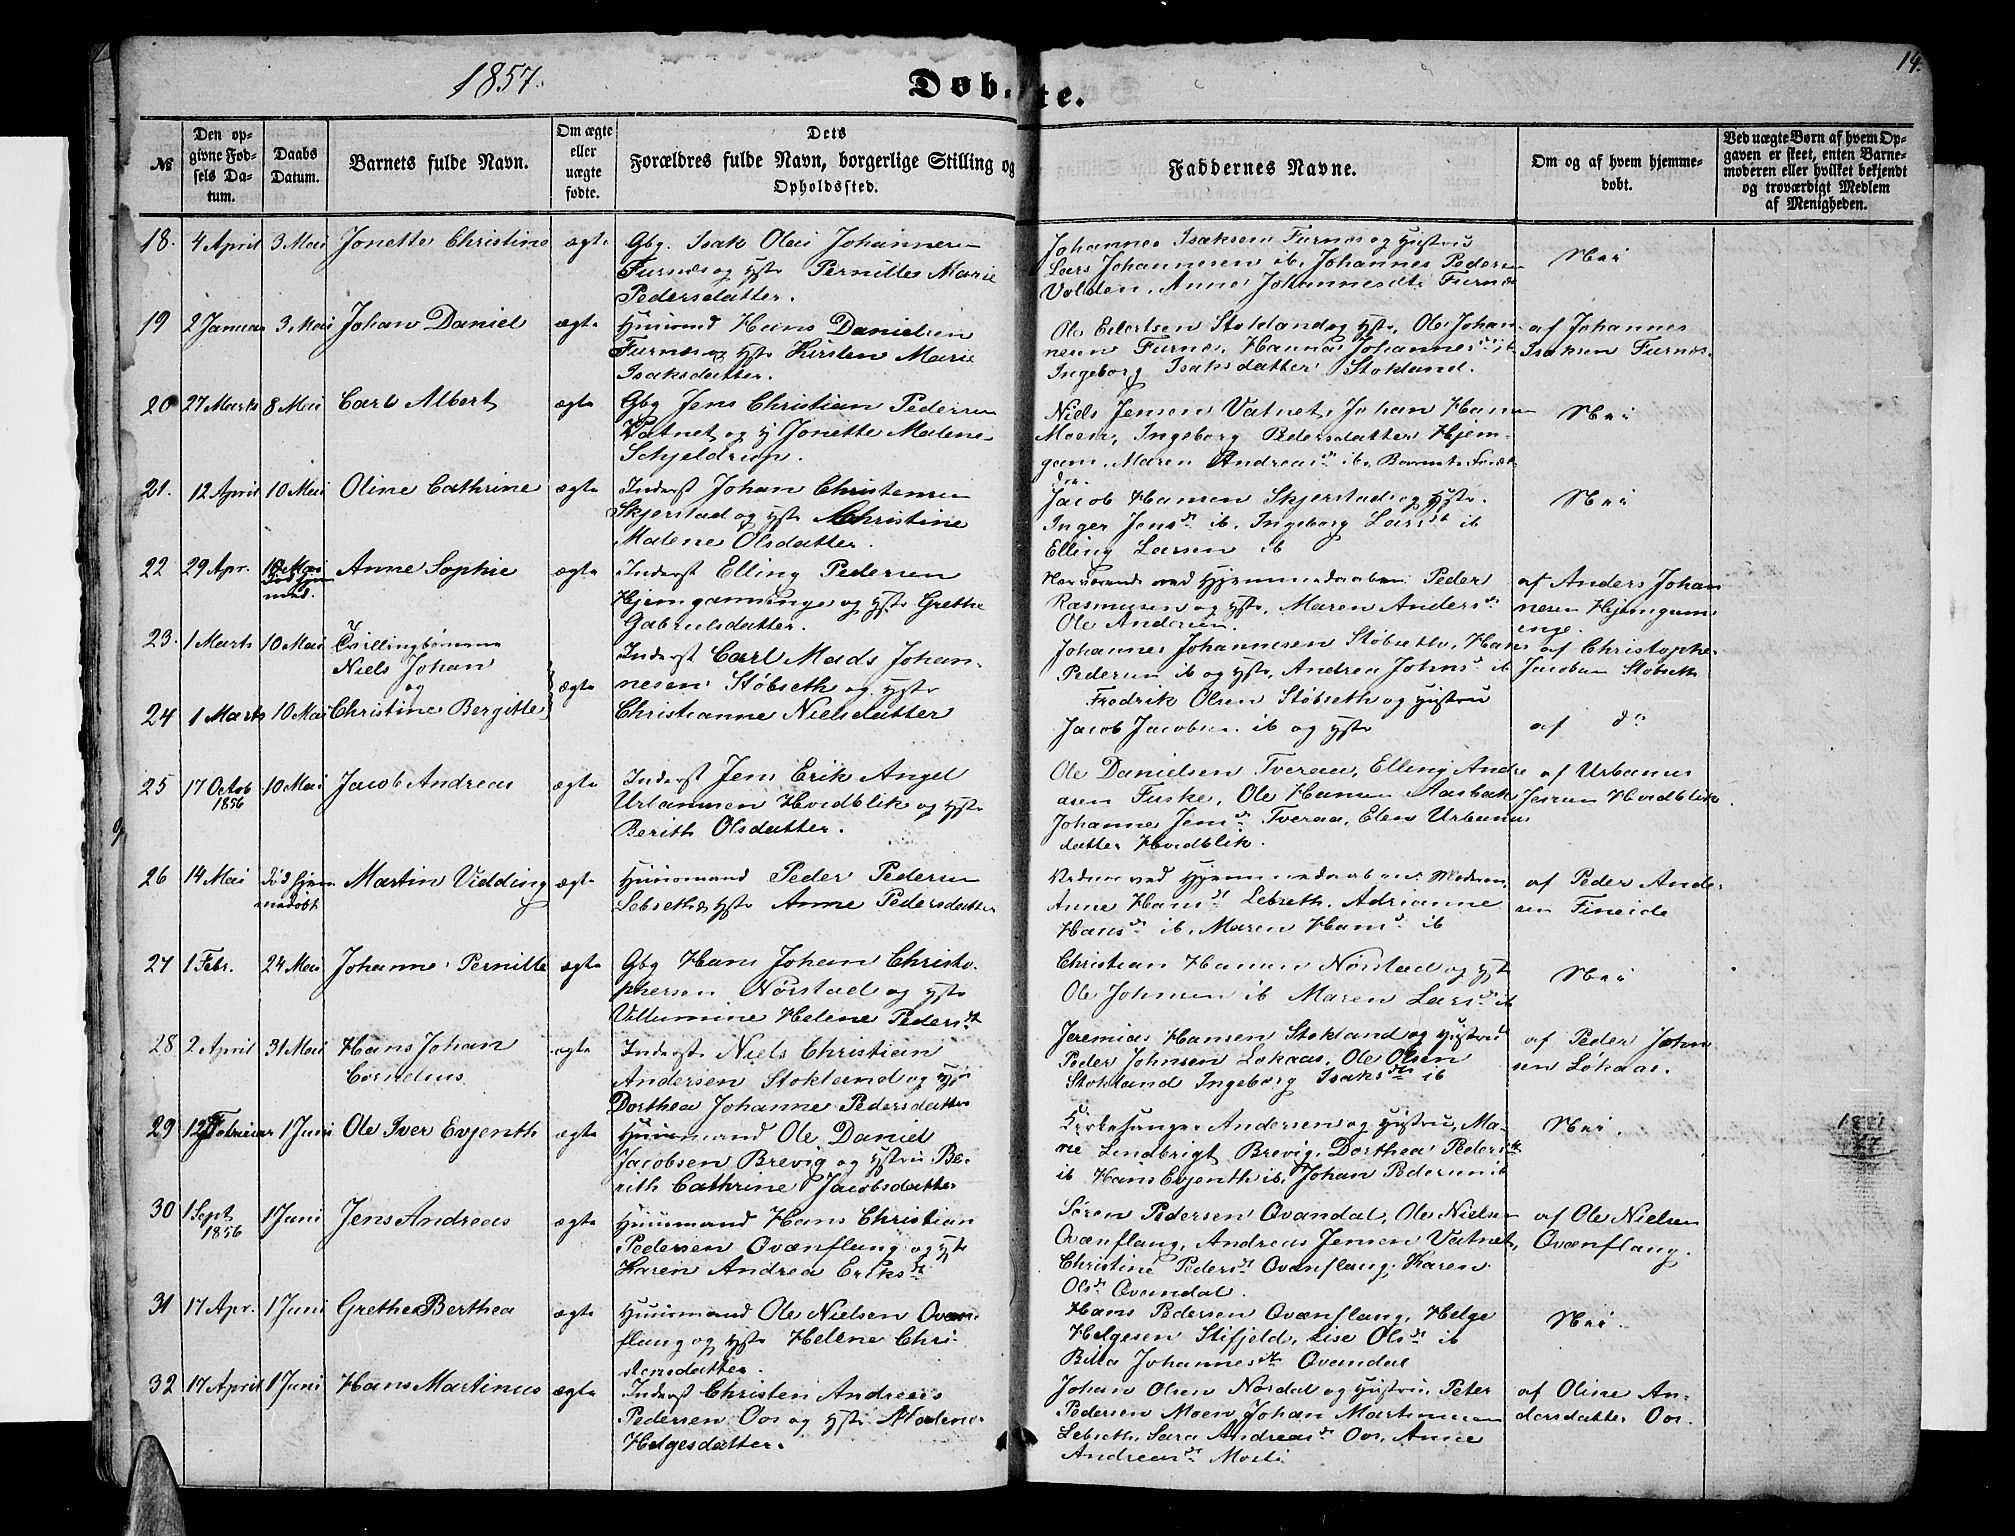 1857.
Døbte.
14.
№
Den op-
givne Fød-
sels Da-
tum.
Daabs
Datum.
Barnets fulde Navn.
Om ægte
eller
uægte
fødte.
Dets
Forældres fulde Navn, borgerlige Stilling og
Opholdssted.
Faddernes Navne.
Om og af hvem hjemme-
døbt.
Ved uægte Børn af hvem Op-
gaven er skeet, enten Barne-
moderen eller hvilket bekjendt
og troværdigt Medlem
af Menigheden.
18. 4 April 3 Mai Jonette Christine ægte
Gbg. Isak Olai Johannesen
Furnæs og Hstr Pernille Marie
Pedersdatter.
Johannes Isaksen Furnæs og Hustru
Lars Johannesen ib, Johannes Pedersen
Volden, Anne Johannesdtr Furnæs
Nei
19 2 Januar 3 Mai Johan Daniel ægte
Huusmand Hans Danielsen
Furnæs og Hstr Kirsten Marie
Isaksdatter.
Ole Eilertsen Stokland og Hstr, Ole Johan-
nesen Furnæs, Hanna Johannesdtr ib
Ingeborg Isaksdatter Stokland.
af Johannes
Isaksen Furnæs.
20 27 Marts 8 Mai Carl Albert ægte
Gbg Jens Christian Pedersen
Vatnet og H Jonette Malene
Schjeldrup.
Niels Jensen Vatnet, Johan Hansen
Moen, Ingeborg Pedersdatter Hjem-
gam, Maren Andreasdtr ib, Barnets Foræl-
dre.
Nei
21. 12 April 10 Mai Oline Cathrine ægte
Inderst Johan Christensen
Skjerstad og Hstr Christine
Malene Olsdatter.
Jacob Hansen Skjerstad og Hstr.
Inger Jensdtr ib, Ingeborg Larsdtr ib
Elling Larsen ib
Nei
22 29 Apr. 10 Mai
Anne Sophie ægte
Inderst Elling Pedersen
Hjemgamminge og Hstr Grethe
Gabrielsdatter.
Nærværende ved Hjemmedaaben: Peder
Rasmusen og Hstr, Maren Andersdtr
Ole Andersen.
af Anders Johan
nesen Hjemgam-
inge.
23. 1 Marts 10 Mai Tvillingbørnene
Niels Johan
og
ægte
Inderst Carl Mads Johan-
nesen Støbseth og Hstr
Christianne Nielsdatter
Johannes Johannesen Støbseth, Hans
Pedersen ib og Hstr, Andrea Johnsdtr ib
af Christopher
Jacobsen Støbseth
24 1 Marts 10 Mai Christine Bergitte
Fredrik Olsen Støbseth og Hustru
Jacob Jacobsen ib og Hstr
af do
25 17 Octob
1856
10 Mai Jacob Andreas ægte
Inderst Jens Erik Angel
Urbanusen Hvidblik og Hstr
Berith Olsdatter.
Ole Danielsen Tveraa, Elling Andre
asen Fuske, Ole Hansen Aasbak
Johanne Jensdtr Tveraa, Elen Urbanus
datter Hvidblik.
af Urbanus
Jensen Hvidblik.
26 14 Mai Død hjem
medøbt
Martin Vidding ægte
Huusmand Peder Pedersen
Lebseth, Hstr Anne Pedersdatter
ved Hjemmedaaben: Moderen,
Anne Hansdtr Lebseth, Adrianne
Hansdtr ib, Maren Hansdtr ib
af Peder Ander
sen Fineide
27 1 Febr. 24 Mai Johanne Pernille ægte
Gbg Hans Johan Christo-
phersen Nørstad og Hstr
Villumine Helene Pedersdt
Christian Hansen Nørstad og Hstr
Ole Johnsen ib Maren Larsdtr ib
Nei
28 2 April 31 Mai Hans Johan
Cornelius
ægte
Inderst Niels Christian
Andersen Stokland og Hstr
Dorthea Johanne Pedersdatter
Jeremias Hansen Stokland og Hustru
Peder Johnsen Løkaas, Ole Olsen
Stokland Ingeborg Isaksdtr ib
af Peder John
sen Løkaas.
29 12 Februar 1 Juni Ole Iver Evjenth ægte
Huusmand Ole Daniel
Jacobsen Brevig og Hustru Be-
rith Cathrine Jacobsdatter
Kirkesanger Andersen og Hustru, Ma-
rie Lindbrigt Brevig, Dorthea Pedersdtr
ib Hans Evjenth ib, Johan Pedersen ib
Nei.
30 1 Sept
1856
1 Juni Jens Andreas ægte
Huusmand Hans Christian
Pedersen Qvænflaug og Hstr
Karen Andrea Eriksdt
Søren Pedersen Qvandal, Ole Nielsen
Qvænflaug, Andreas Jensen Vatnet,
Christine Pedersdt Qvænflaug, Karen
Olsdtr Qvandal.
af Ole Nielsen
Qvænflaug.
31 17 Apr. 1 Juni Grethe Berthea ægte
Huusmand Ole Nielsen Qvæn-
flaug og Hstr Helene Chri-
stensdatter.
Hans Pedersen Qvænflaug, Helge
Helgesen Stifjeld, Lise Olsdt ib
Bitta Johannesdt Qvandal
Nei
32 17 April 1 Juni Hans Martinus ægte
Inderst Christen Andreas
Pedersen Oos og Hstr Malene
Helgesdatter.
Johan Olsen Nordal og Hustru, Peter
Pedersen Moen Johan Martinusen
Lebseth, Sara Andreasdtr Oos, Anne
Andreasdtr
af Oline An-
dersdatter Oos.